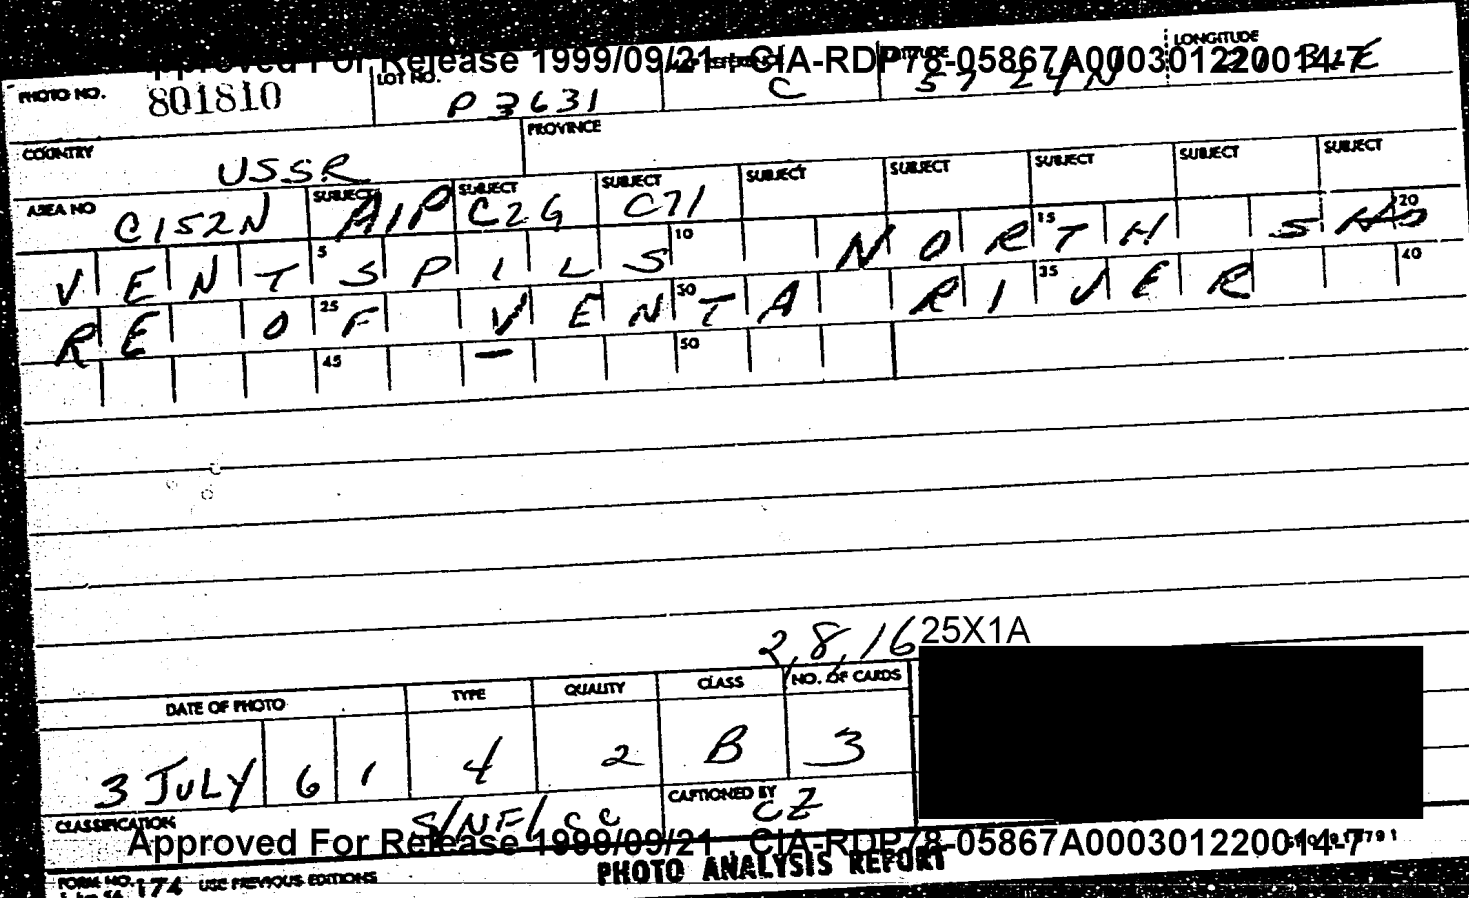 Approved For Release 1999/09/21 : CIA-RDP78-05867A000301220014-7
PHOTO NO. 801810 LOT NO. P 3631 C 57 24 N LONGITUDE
COUNTRY USSR PROVINCE
AREA NO C152N SUBJECT AIP SUBJECT C2G SUBJECT C71 SUBJECT SUBJECT SUBJECT SUBJECT SUBJECT
5 10 15 20
VENTSPILS NORTH SHO
25 30 35 40
RE OF VENTA RIVER
45 - 50
2,8,16 25X1A
DATE OF PHOTO TYPE QUALITY CLASS NO. OF CARDS
3 JULY 6 1 4 2 B 3
CLASSIFICATION S/NF/CC CAPTIONED BY CZ
Approved For Release 1999/09/21 : CIA-RDP78-05867A000301220014-7
FORM NO. 174 USE PREVIOUS EDITIONS PHOTO ANALYSIS REPORT